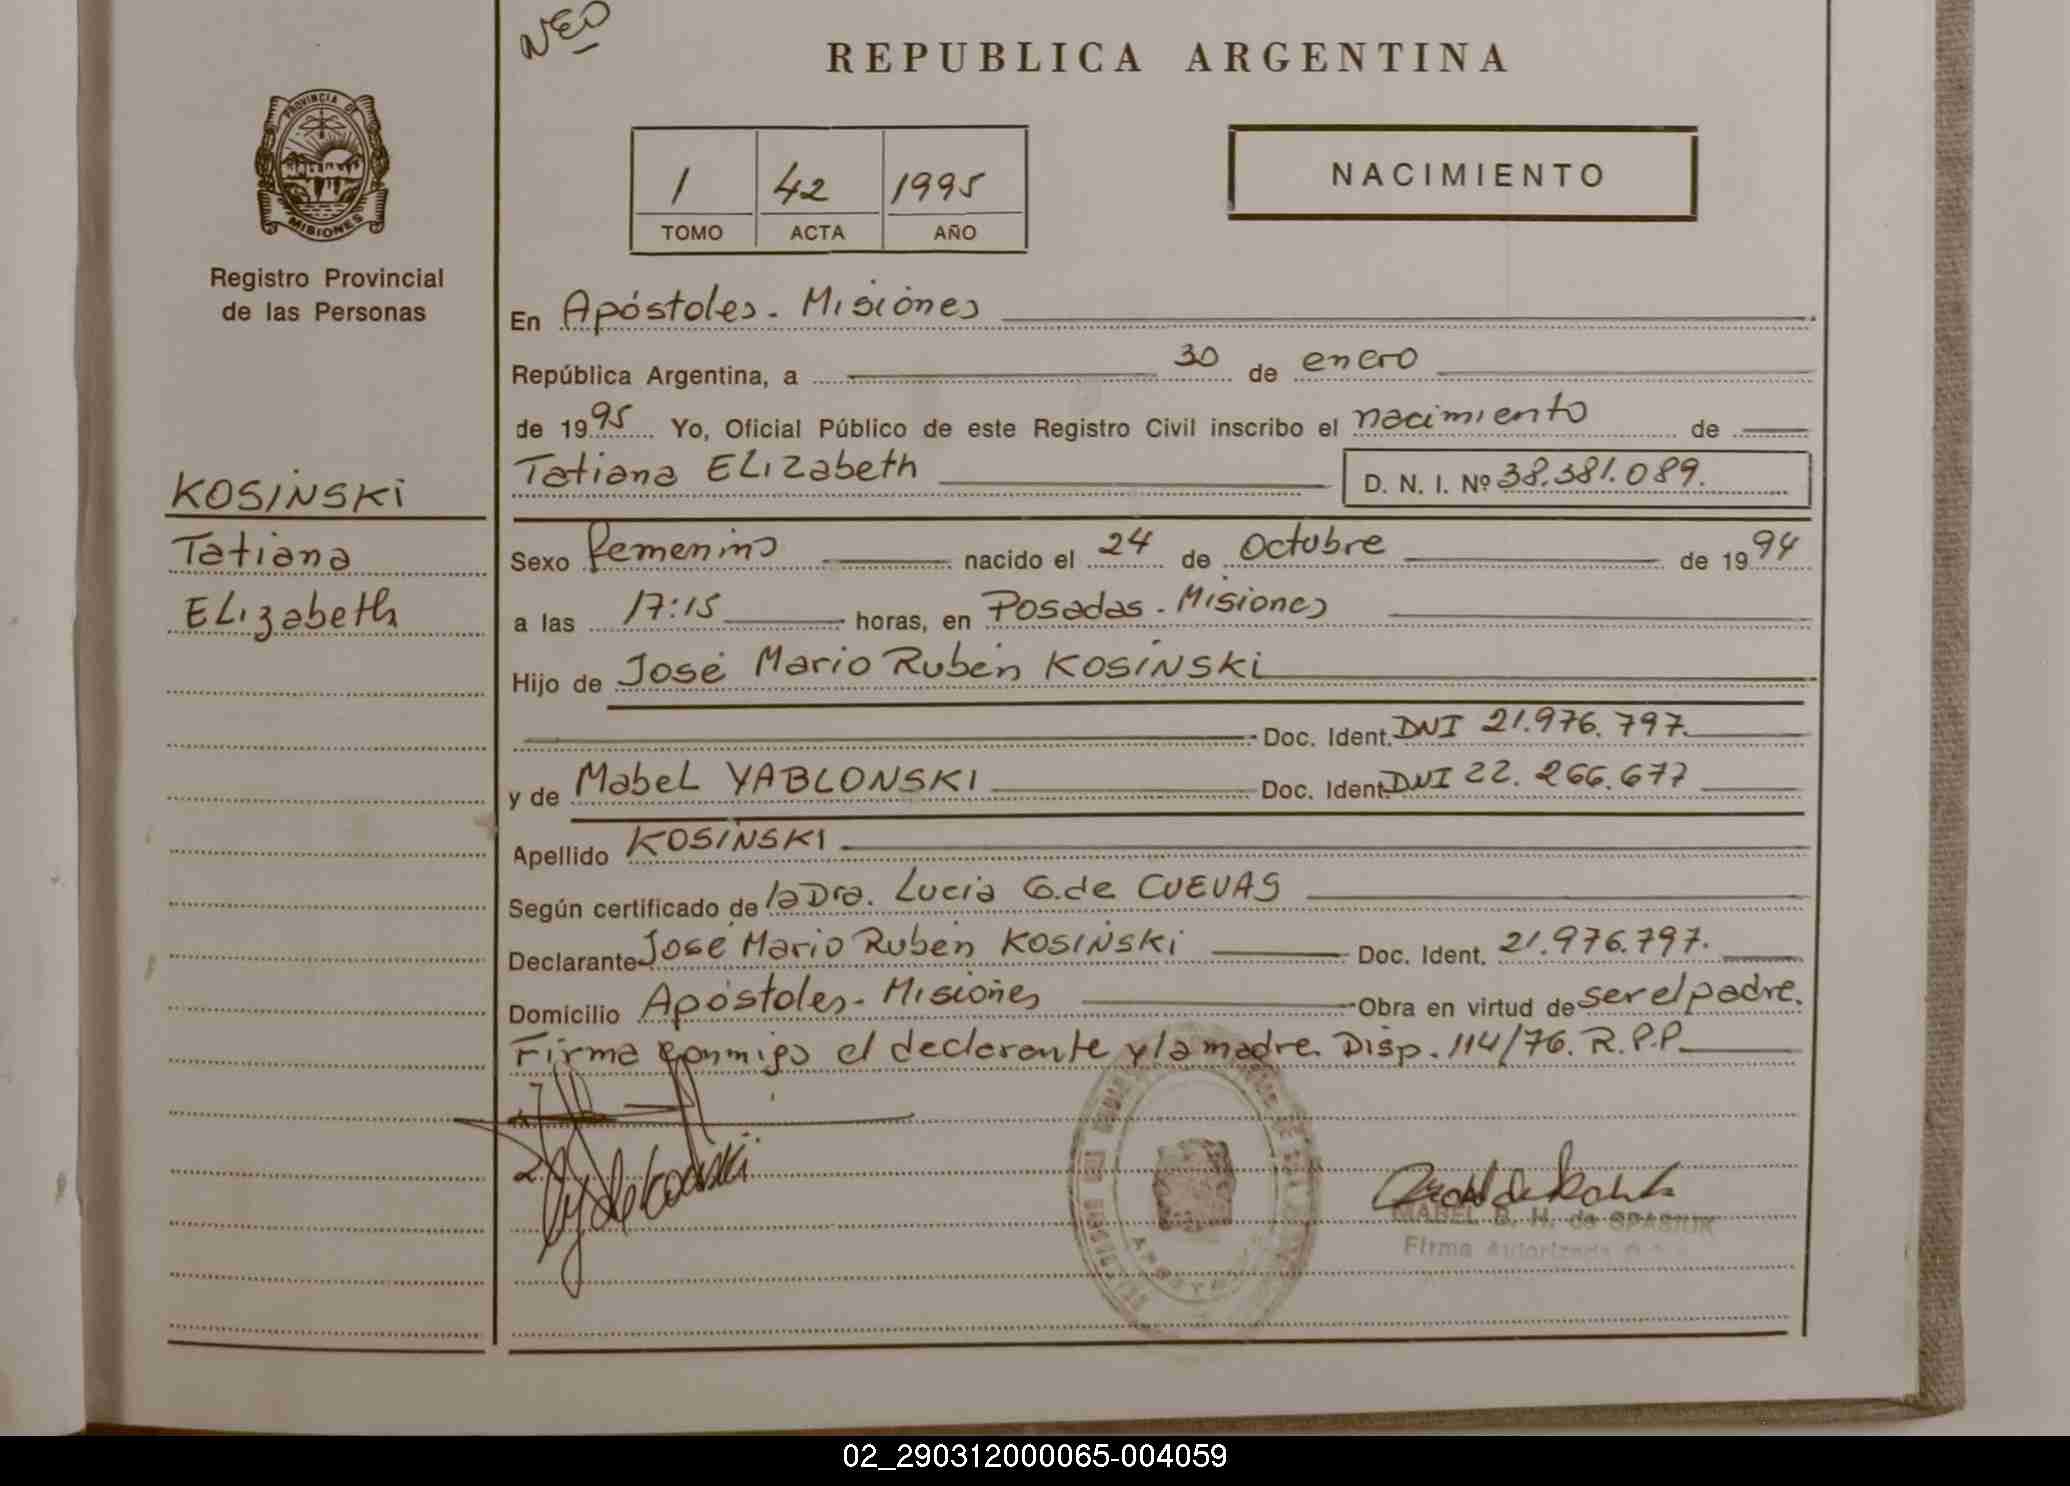 NEO
REPUBLICA ARGENTINA
PROVINCIA DE
MISIONES
1 42 1995
TOMO ACTA AÑO
NACIMIENTO
Registro Provincial
de las Personas
En Apóstoles. Misiones
República Argentina, a 30 de enero
de 1995 Yo, Oficial Público de este Registro Civil inscribo el nacimiento de
Tatiana ELizabeth D. N. I. Nº 38.381.089.
KOSINSKi
Tatiana
ELizabeth
Sexo femenino nacido el 24 de Octubre de 1994
a las 17:15 horas, en Posadas. Misiones
Hijo de José Mario Rubén KOSINSKi
Doc. Ident. DNI 21.976.797.
y de MabeL YABLONSKI Doc. Ident. DNI 22.266.677
Apellido KOSINSKI
Según certificado de la Dra. Lucia G. de CUEVAS
Declarante José Mario Rubén KOSINSKi Doc. Ident. 21.976.797.
Domicilio Apóstoles. Misiones Obra en virtud de ser el padre.
Firma conmigo el declarante y la madre. Disp. 114/76. R.P.P.
MABEL B. H. de SPASIUK
Firma Autorizada
02_290312000065-004059